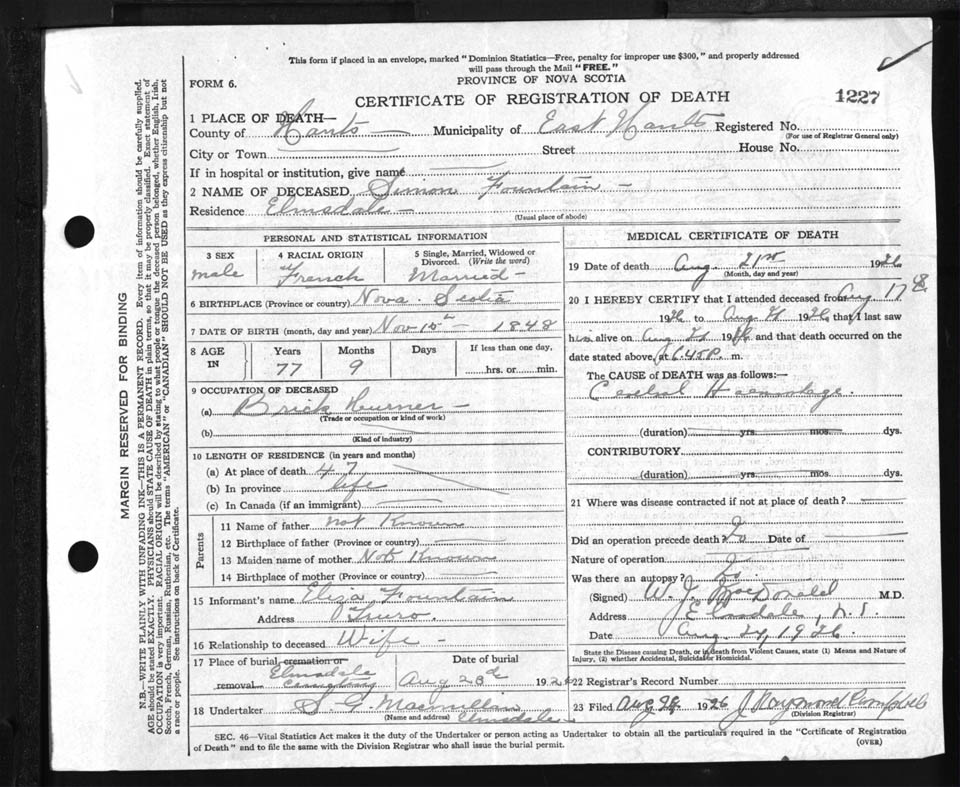 This form if placed in an envelope, marked "Dominion Statistics—Free, penalty for improper use $300," and properly addressed
will pass through the Mail "FREE."
PROVINCE OF NOVA SCOTIA
FORM 6.
CERTIFICATE OF REGISTRATION OF DEATH
1227
1 PLACE OF DEATH—
County of Hants Municipality of East Hants Registered No.
(For use of Registrar General only)
City or Town Street House No.
If in hospital or institution, give name
2 NAME OF DECEASED Simon Fountain
Residence Elmsdale
(Usual place of abode)
PERSONAL AND STATISTICAL INFORMATION
3 SEX 4 RACIAL ORIGIN 5 Single, Married, Widowed or
Divorced. (Write the word)
male French Married
6 BIRTHPLACE (Province or country) Nova Scotia
7 DATE OF BIRTH (month, day and year) Nov 15th 1848
8 AGE IN Years Months Days If less than one day,
77 9 hrs. or min.
9 OCCUPATION OF DECEASED
(a) Brick Burner
(Trade or occupation or kind of work)
(b)
(Kind of industry)
10 LENGTH OF RESIDENCE (in years and months)
(a) At place of death 47
(b) In province life
(c) In Canada (if an immigrant)
Parents
11 Name of father not Known
12 Birthplace of father (Province or country)
13 Maiden name of mother Not Known
14 Birthplace of mother (Province or country)
15 Informant's name Eliza Fountain
Address Truro
16 Relationship to deceased Wife
17 Place of burial, cremation or Date of burial
removal Elmsdale Cemetery Aug 23d 1926
18 Undertaker S. G. Macmillan
(Name and address) Elmsdale
MEDICAL CERTIFICATE OF DEATH
19 Date of death Aug. 21st 1926
(Month, day and year)
20 I HEREBY CERTIFY that I attended deceased from Aug 17
1926 to Aug 21 1926 that I last saw
him alive on Aug 21 1926 and that death occurred on the
date stated above, at 6.45 P. m.
The CAUSE OF DEATH was as follows:—
Cerebral Haemorrhage.
(duration) yrs. mos. dys.
CONTRIBUTORY
(duration) yrs. mos. dys.
21 Where was disease contracted if not at place of death?
Did an operation precede death? No Date of
Nature of operation
Was there an autopsy? No
(Signed) W. J. MacDonald M.D.
Address Elmsdale, N.S.
Date Aug. 1926
State the Disease causing Death, or in death from Violent Causes, state (1) Means and Nature of
Injury, (2) whether Accidental, Suicidal or Homicidal.
22 Registrar's Record Number
23 Filed Aug 1926 J. Raymond
(Division Registrar)
SEC. 46—Vital Statistics Act makes it the duty of the Undertaker or person acting as Undertaker to obtain all the particulars required in the "Certificate of Registration
of Death" and to file the same with the Division Registrar who shall issue the burial permit.
(OVER)
MARGIN RESERVED FOR BINDING
N.B.—WRITE PLAINLY WITH UNFADING INK—THIS IS A PERMANENT RECORD. Every item of information should be carefully supplied.
AGE should be stated EXACTLY. PHYSICIANS should STATE CAUSE OF DEATH in plain terms, so that it may be properly classified. Exact statement of
OCCUPATION is very important. RACIAL ORIGIN will be described by stating to what people or tongue the deceased person belonged, whether English, Irish,
Scotch, French, German, Russian, Ruthenian, etc. The terms "AMERICAN" or "CANADIAN" SHOULD NOT BE USED as they express citizenship but not
a race or people. See instructions on back of Certificate.